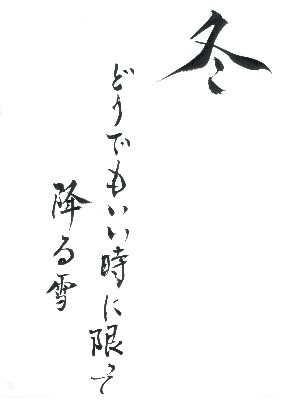 冬
どうでもいい時に限って
降る雪